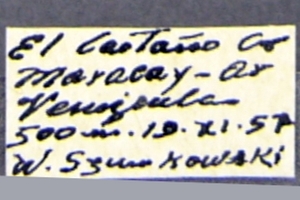 El Castaño Co
Maracay - Ar
Venezuela
500 m. 19. XI. 57
W. Szumkowski